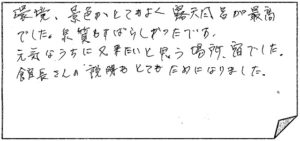 環境、景色がとてもよく露天風呂が最高
でした。泉質もすばらしかったです。
元気なうちに又来たいと思う場所、宿でした。
館長さんの説明もとてもためになりました。